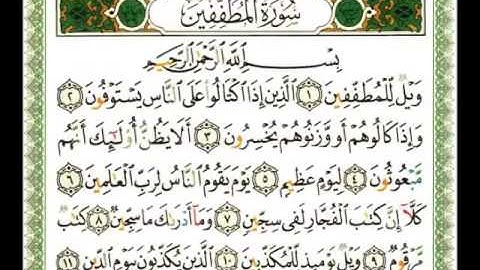 سُورَةُ المُطَفِّفِينَ
بِسْمِ اللَّهِ الرَّحْمَٰنِ الرَّحِيمِ
وَيْلٌ لِّلْمُطَفِّفِينَ ۝١ الَّذِينَ إِذَا اكْتَالُوا عَلَى النَّاسِ يَسْتَوْفُونَ ۝٢
وَإِذَا كَالُوهُمْ أَو وَّزَنُوهُمْ يُخْسِرُونَ ۝٣ أَلَا يَظُنُّ أُولَٰئِكَ أَنَّهُم
مَّبْعُوثُونَ ۝٤ لِيَوْمٍ عَظِيمٍ ۝٥ يَوْمَ يَقُومُ النَّاسُ لِرَبِّ الْعَالَمِينَ ۝٦
كَلَّا إِنَّ كِتَابَ الْفُجَّارِ لَفِي سِجِّينٍ ۝٧ وَمَا أَدْرَاكَ مَا سِجِّينٌ ۝٨ كِتَابٌ
مَّرْقُومٌ ۝٩ وَيْلٌ يَوْمَئِذٍ لِّلْمُكَذِّبِينَ ۝١٠ الَّذِينَ يُكَذِّبُونَ بِيَوْمِ الدِّينِ ۝١١